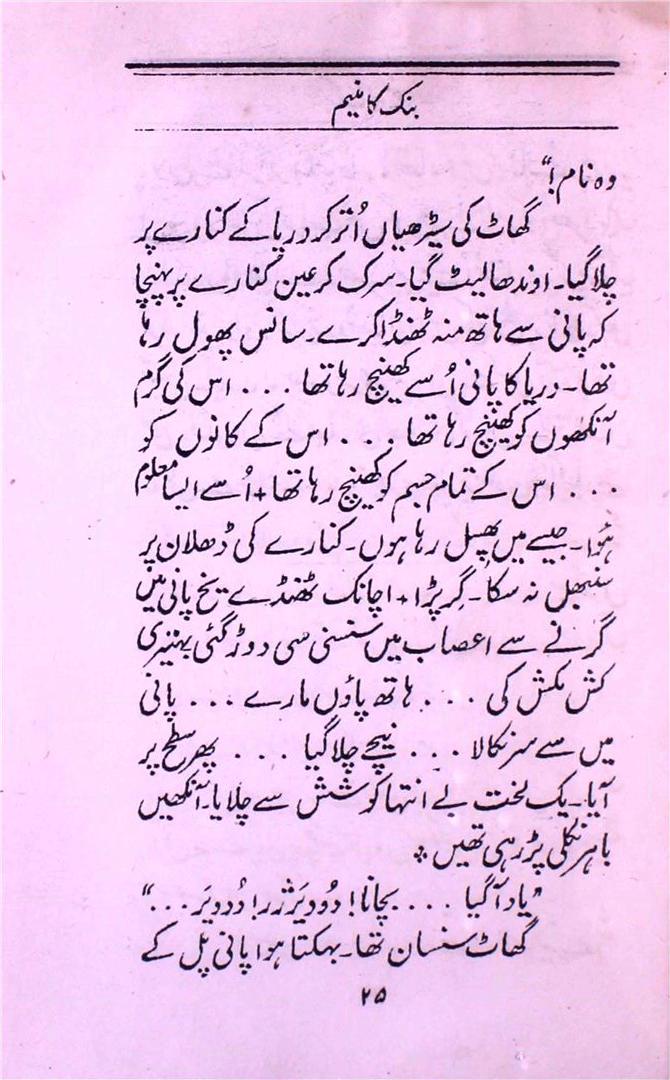 بنک کا منیم
وہ نام!“
گھاٹ کی سیڑھیاں اُتر کر دریا کے کنارے پر
چلا گیا۔ اوندھا لیٹ گیا۔ سرک کر عین کنارے پر پہنچا
کہ پانی سے ہاتھ منہ ٹھنڈا کرے۔ سانس پھول رہا
تھا۔ دریا کا پانی اُسے کھینچ رہا تھا ... اس کی گرم
آنکھوں کو کھینچ رہا تھا ... اس کے کانوں کو
... اس کے تمام جسم کو کھینچ رہا تھا + اُسے ایسا معلوم
ہُوا۔ جیسے میں پھسل رہا ہوں۔ کنارے کی ڈھلان پر
سنبھل نہ سکا۔ گِر پڑا + اچانک ٹھنڈے یخ پانی میں
گرنے سے اعصاب میں سنسنی سی دوڑ گئی بہتیری
کش مکش کی .... ہاتھ پاؤں مارے ... پانی
میں سے سر نکالا ... نیچے چلا گیا .... پھر سطح پر
آیا۔ یک لخت بے انتہا کوشش سے چلایا۔ آنکھیں
باہر نکلی پڑ رہی تھیں +
”یاد آ گیا .... بچانا! دُوویَرژر! دُوویَر ...“
گھاٹ سنسان تھا۔ بہکتا ہوا پانی پل کے
۲۵